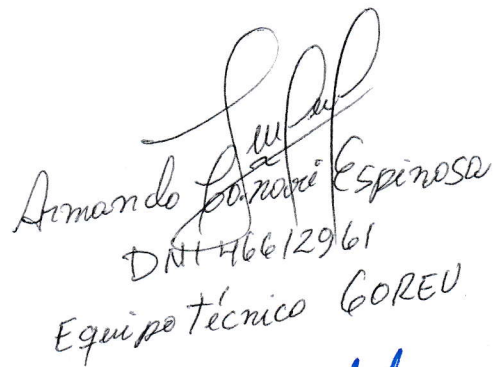 Armando Espinosa
DNI 46612961
Equipo técnico GOREU